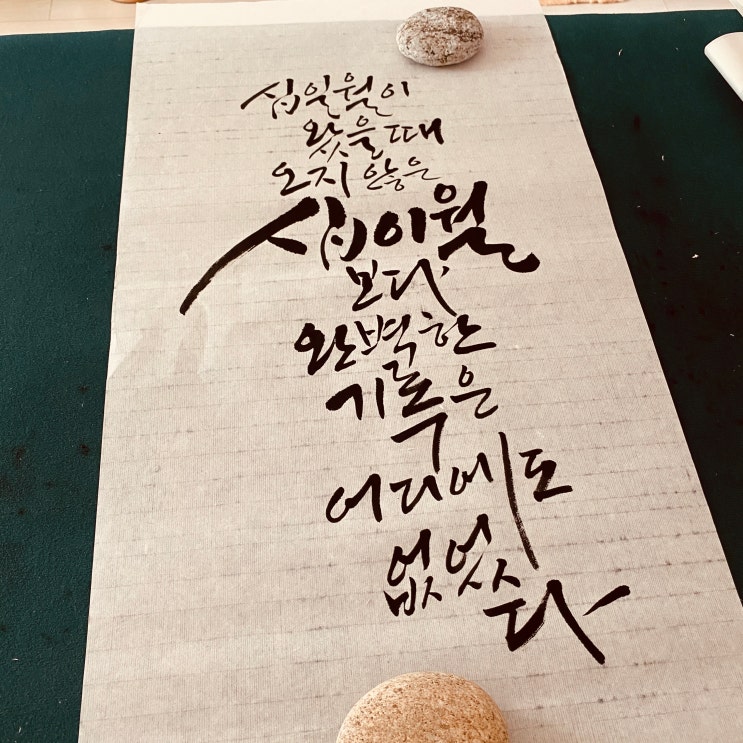 십일월이
왔을때
오지 않은
십이월
보다
완벽한
기록은
어디에도
없었다